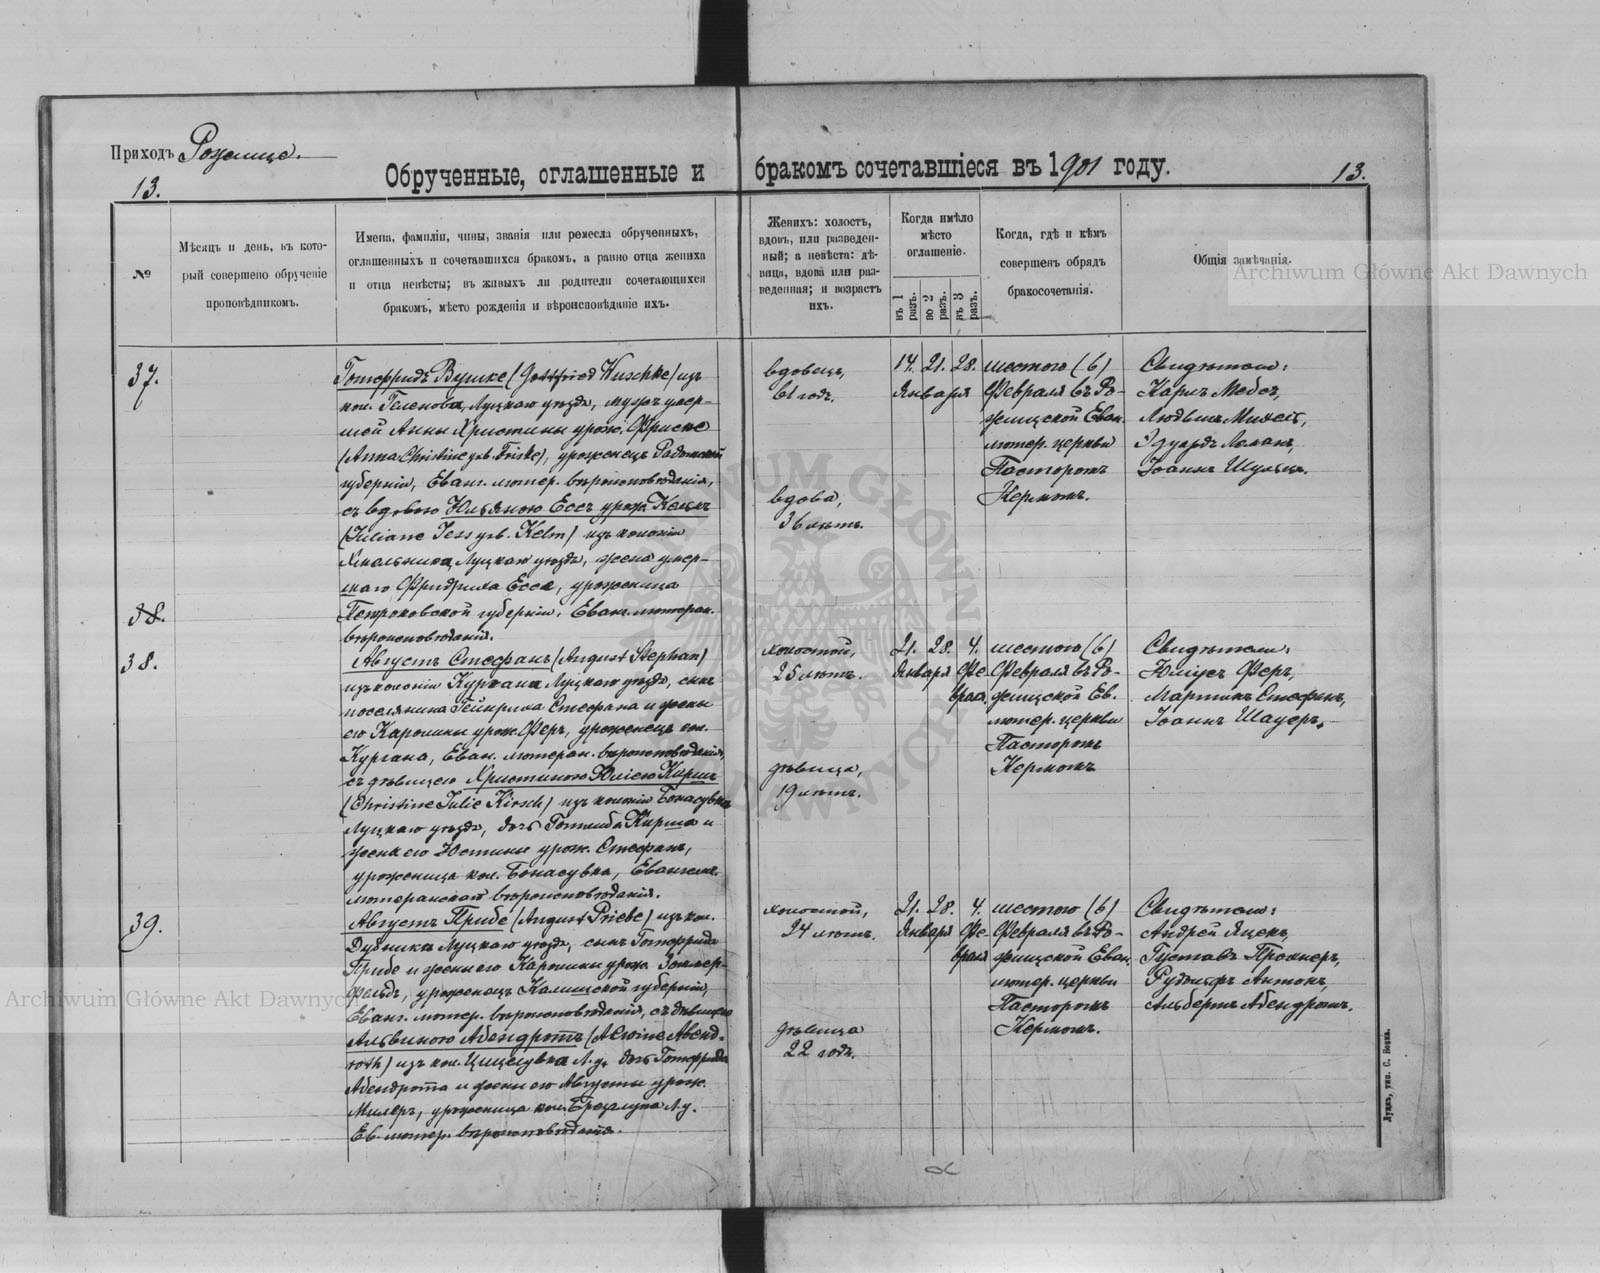 Приходъ Рожище.
13.
Обрученные, оглашенные и бракомъ сочетавшіеся въ 1901 году.
13.
№
Мѣсяцъ и день, въ кото-
рый совершено обрученіе
проповѣдникомъ.
Имена, фамиліи, чины, званія или ремесла обрученныхъ,
оглашенныхъ и сочетавшихся бракомъ, а равно отца жениха
и отца невѣсты; въ живыхъ ли родители сочетающихся
бракомъ, мѣсто рожденія и вѣроисповѣданіе ихъ.
Женихъ: холостъ,
вдовъ, или разведен-
ный; а невѣста: дѣ-
вица, вдова или раз-
веденная; и возрастъ
ихъ.
Когда имѣло
мѣсто
оглашеніе.
въ 1 разъ.
во 2 разъ.
въ 3 разъ.
Когда, гдѣ и кѣмъ
совершенъ обрядъ
бракосочетанія.
Общія замѣчанія.
Archiwum Główne Akt Dawnych
37.
Готфридъ Вушке (Gottfried Wuschke) изъ
кол. Геленова, Луцкаго уѣзда, мужъ умер-
шей Анны Христины урож. Фриске
(Anna Christine geb. Friske), уроженецъ Радомской
губерніи, Еванг. лютер. вѣроисповѣданія,
съ вдовою Юльяною Ессъ урож. Кельмъ
(Juliane Jess geb. Kelm) изъ колоніи
Хмѣльника, Луцкаго уѣзда, жена умер-
шаго Фридриха Есса, уроженица
Петроковской губерніи, Еванг. лютеран.
вѣроисповѣданія.
вдовецъ,
61 годъ.
вдова,
36 лѣтъ.
14. 21. 28.
Января
шестого (6)
Февраля въ Ро-
жищской Еван.
лютер. церкви
Пасторомъ
Кермомъ.
Свидѣтели:
Карлъ Мебсъ,
Людвигъ Михель,
Эдуардъ Ломанъ,
Іоаннъ Шульцъ.
38.
38.
Августъ Стефанъ (August Stephan)
изъ колоніи Кургана Луцкаго уѣзда, сынъ
поселянина Гейнриха Стефана и жены
его Каролины урож. Феръ, уроженецъ кол.
Кургана, Еван. лютеран. вѣроисповѣданія,
съ дѣвицею Христиною Юліею Киршъ
(Christine Julie Kirsch) изъ колоніи Бокасувка
Луцкаго уѣзда, дочь Готлиба Кирша и
жены его Юстины урож. Стефанъ,
уроженица кол. Бокасувка, Евангел.
лютеранскаго вѣроисповѣданія.
холостой,
25 лѣтъ.
дѣвица,
19 лѣтъ.
21. 28. 4.
Января Фе-
враля
шестого (6)
Февраля въ Ро-
жищской Ев.
лютер. церкви
Пасторомъ
Кермомъ
Свидѣтели:
Юліусъ Феръ,
Мартинъ Стефанъ,
Іоаннъ Шауеръ.
39.
Августъ Прибе (August Priebe) изъ кол.
Дубники Луцкаго уѣзда, сынъ Готфрида
Прибе и жены его Каролины урож. Зоммер-
фельдъ, уроженецъ Калишской губерніи,
Еванг. лютер. вѣроисповѣданія, съ дѣвицею
Альвиною Абендротъ (Alwine Abend-
roth) изъ кол. Цицелувка Л. у. дочь Готфрида
Абендрота и жены его Августы урож.
Миллеръ, уроженица кол. Брезалупа Л. у.
Ев. лютер. вѣроисповѣданія.
холостой,
24 лѣтъ.
дѣвица
22 годъ.
21. 28. 4.
Января Фе-
враля
шестого (6)
Февраля въ Ро-
жищской Еван.
лютер. церкви
Пасторомъ
Кермомъ.
Свидѣтели:
Андрей Яцекъ,
Густавъ Проппёръ,
Рудольфъ Антонъ,
Альбертъ Абендротъ.
Archiwum Główne Akt Dawnych
Луцкъ, тип. С. Бокка.